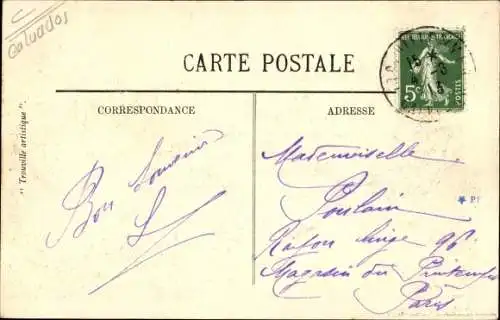 Calvados
CARTE POSTALE
RÉPUBLIQUE FRANÇAISE
5c
POSTES
CORRESPONDANCE
ADRESSE
"Trouville artistique".
Bon Souvenir
L
Mademoiselle
Poulain
Rayon linge 96
Magasin du Printemps
Paris